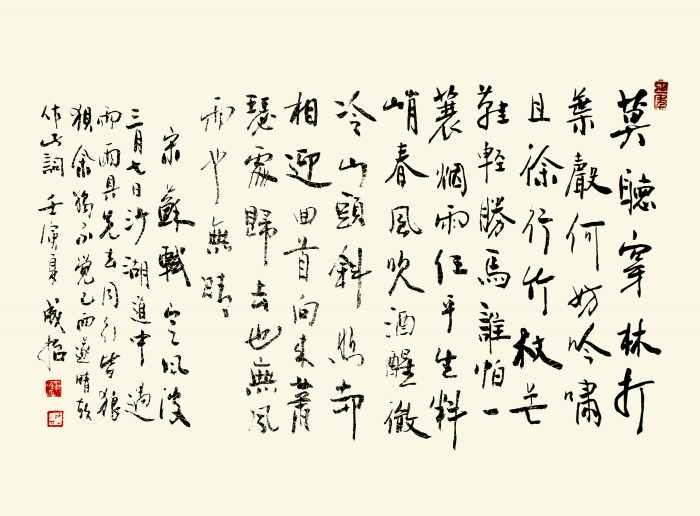 莫聽穿林打
葉聲何妨吟嘯
且徐行竹杖芒
鞋輕勝馬誰怕一
蓑烟雨任平生料
峭春風吹酒醒微
冷山頭斜照却
相迎回首向來蕭
瑟處歸去也無風
雨也無晴
宋蘇軾定風波
三月七日沙湖道中遇
雨雨具先去同行皆狼
狽余獨不覺已而遂晴故
作此詞 壬寅夏